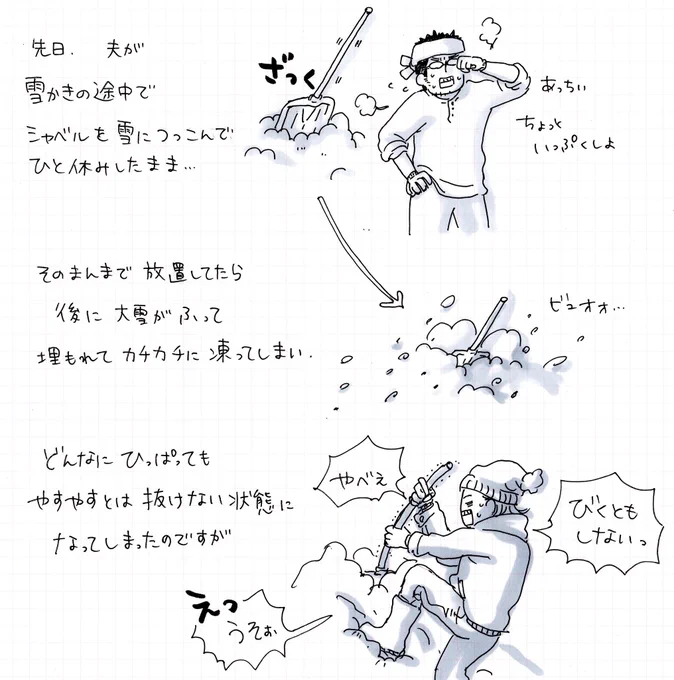 先日. 夫が
雪かきの途中で
シャベルを雪につっこんで
ひと休みしたまま…
ざっく
あっちぃ
ちょっと
いっぷくしよ
そのまんまで放置してたら
後に大雪がふって
埋もれてカチカチに凍ってしまい.
ビュオォ…
どんなにひっぱっても
やすやすとは抜けない状態に
なってしまったのですが
やべぇ
びくとも
しないっ
えっ
うそぉ